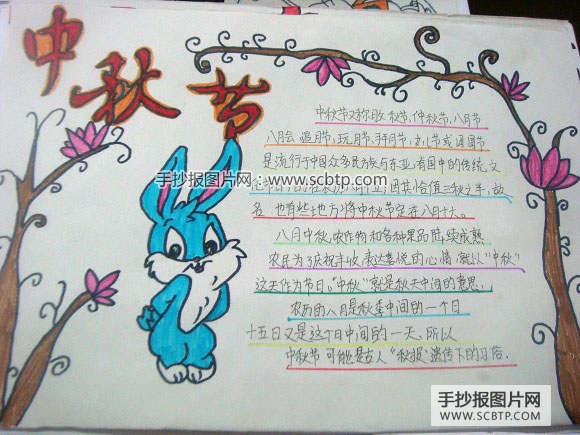 中秋节
中秋节又称月夕,秋节,仲秋节,八月节
八月会,追月节,玩月节,拜月节,女儿节或团圆节
是流行于中国众多民族与东亚诸国中的传统文
手抄报图片网:www.scbtp.com
名,也有些地方将中秋节定在八月十六。
八月中秋,农作物和各种果品陆续成熟
农民为了庆祝丰收,表达喜悦的心情,就以“中秋”
这天作为节日。“中秋”就是秋天中间的意思,
农历的八月是秋季中间的一个月
十五日又是这个月中间的一天,所以
中秋节可能是古人“秋报”遗传下的习俗.
手抄报图片网
WWW.SCBTP.COM